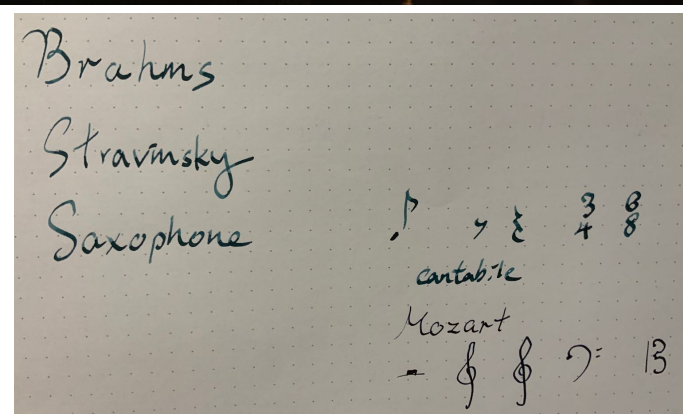 Brahms
Stravinsky
Saxophone
3 6
4 8
cantabile
Mozart